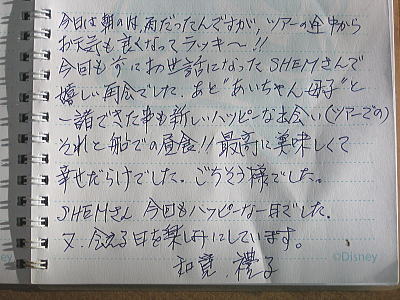 今日は朝のは、雨だったんですが、ツアーの途中から
お天気も良くなってラッキ〜!!
今回も前にお世話になったSHEMさんで
嬉しい再会でした。あと"あいちゃん母子"と
一諸できた事も新しいハッピーな出会い(ツアーでの)
それと船での昼食!!最高に美味しくて
幸せだらけでした。ごちそう様でした。
SHEMさん 今回もハッピーな一日でした。
又、会える日を楽しみにしています。
禮子
©Disney